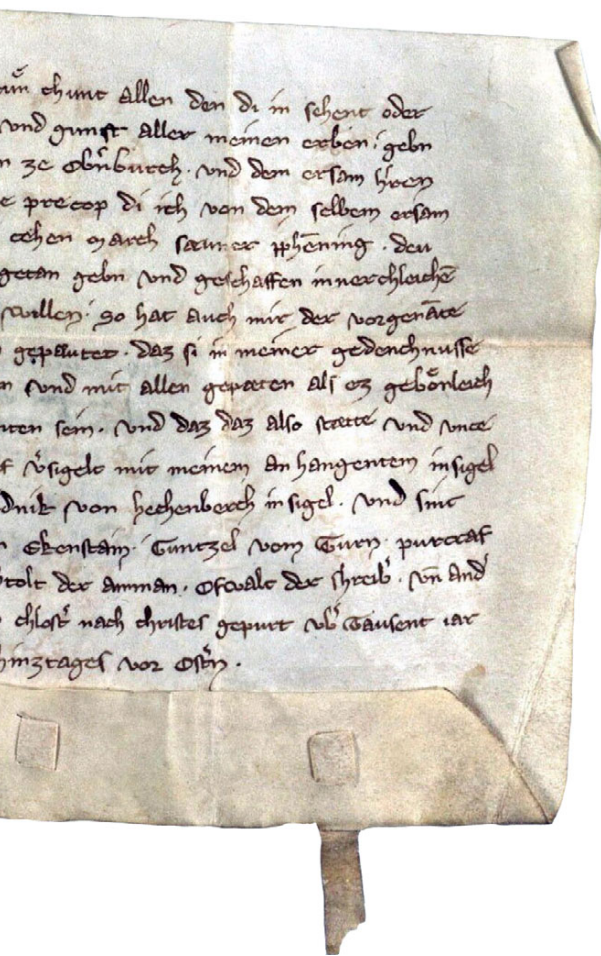 tuͦn chunt allen den di in sehent oder
vnd gunst aller meinen erben · gebn
ze Obᵉrnburch · vnd dem ersam hᵉren
precop di ich von dem selbem ersam
cehen march pphēning · den
getan gebn vnd geschaffen innerchleichē
willen · So hat auch mir der vorgenāte
gepawtet · daz si in meiner gedenchnusse
vnd mit allen gepæten als ez geboͤnleich
sein · vnd daz daz also stætte vnd vnce
vᵉsigelt mit meinem anhangentem insigel
von hechenberch insigel · vnd sint
Ekenstain · Guntzel vom Turn · purcraf
der amman · Oswalt der schreibᵉ · vn̄ andᵉ
chlostᵉ nach christes gepurt vbᵉ Tausent iar
vor Ostᵉn ·